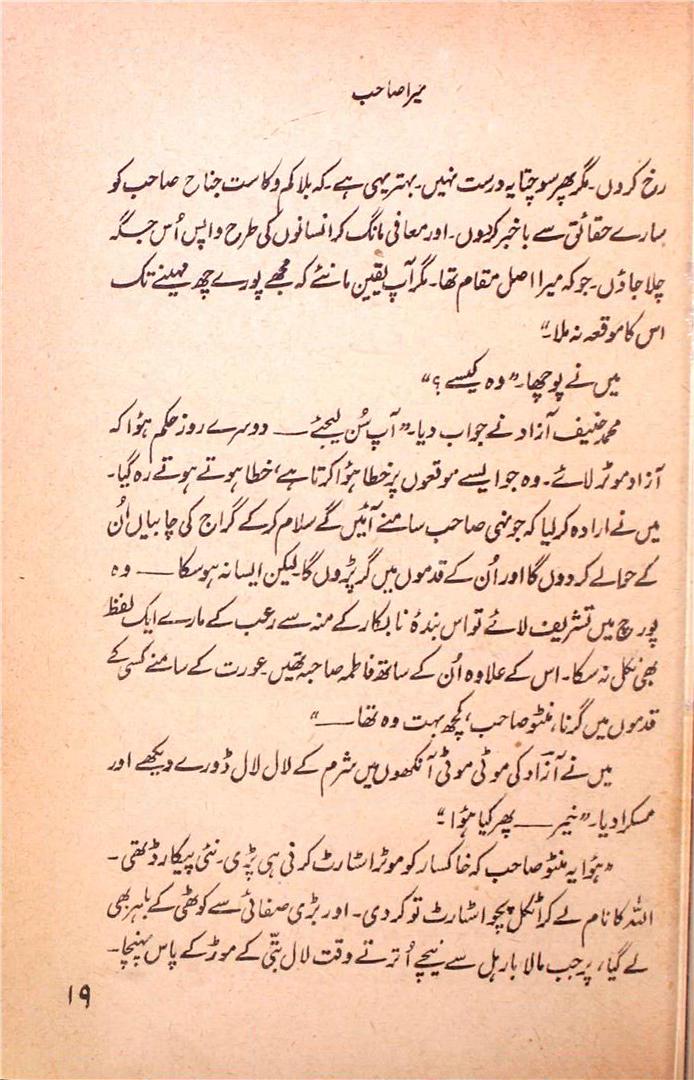 میرا صاحب
رخ کروں۔ مگر پھر سوچتا یہ درست نہیں۔ بہتر یہی ہے۔ کہ بلاکم وکاست جناح صاحب کو
سارے حقائق سے باخبر کردوں۔ اور معافی مانگ کر انسانوں کی طرح واپس اُس جگہ
چلا جاؤں۔ جو کہ میرا اصل مقام تھا۔ مگر آپ یقین مانئے کہ مجھے پورے چھ مہینے تک
اس کا موقعہ نہ ملا۔“
میں نے پوچھا۔ ”وہ کیسے؟“
محمد حنیف آزاد نے جواب دیا۔ ”آپ سُن لیجئے —— دوسرے روز حکم ہؤا کہ
آزاد موٹر لائے۔ وہ جو ایسے موقعوں پر خطا ہؤا کرتا ہے، خطا ہوتے ہوتے رہ گیا۔
میں نے ارادہ کر لیا کہ جونہی صاحب سامنے آئیں گے سلام کر کے گراج کی چابیاں اُن
کے حوالے کردوں گا اور اُن کے قدموں میں گر پڑوں گا لیکن ایسا نہ ہو سکا —— وہ
پورچ میں تشریف لائے تو اس بندۂ نابکار کے منہ سے رعب کے مارے ایک لفظ
بھی نکل نہ سکا۔ اس کے علاوہ اُن کے ساتھ فاطمہ صاحبہ تھیں۔ عورت کے سامنے کسی کے
قدموں میں گرنا، منٹو صاحب، کچھ بہت وہ تھا ——“
میں نے آزاد کی موٹی موٹی آنکھوں میں شرم کے لال لال ڈورے دیکھے اور
مسکرا دیا۔ ”خیر —— پھر کیا ہؤا۔“
”ہؤا یہ منٹو صاحب کہ خاکسار کو موٹر اسٹارٹ کرنی ہی پڑی۔ نئی پیکارڈ تھی۔
اللہ کا نام لے کر اٹکل پچو اسٹارٹ تو کر دی۔ اور بڑی صفائی سے کوٹھی کے باہر بھی
لے گیا، پر جب مالا بار ہل سے نیچے اُترتے وقت لال بتّی کے موڑ کے پاس پہنچا۔
۱۹